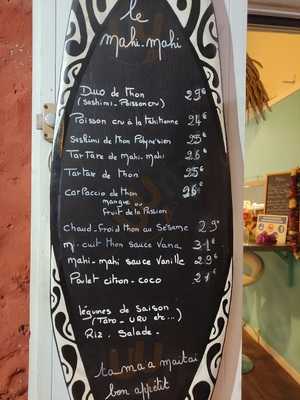 le
mahi-mahi
Duo de thon 29€
(sashimi-Poisson cru)
Poisson cru à la tahitienne 24€
Sashimi de thon Polynésien 25€
TarTare de mahi-mahi 26€
Tartare de thon 25€
carpaccio de thon 26€
mangue ou
fruit de la Passion
chaud-froid thon au sésame 29€
mi-cuit thon sauce vana 31€
mahi-mahi sauce vanille 29€
Poulet citron-coco
légumes de saison
(Taro-uru etc...)
Riz. Salade.
ta ma'a maitai
bon appétit